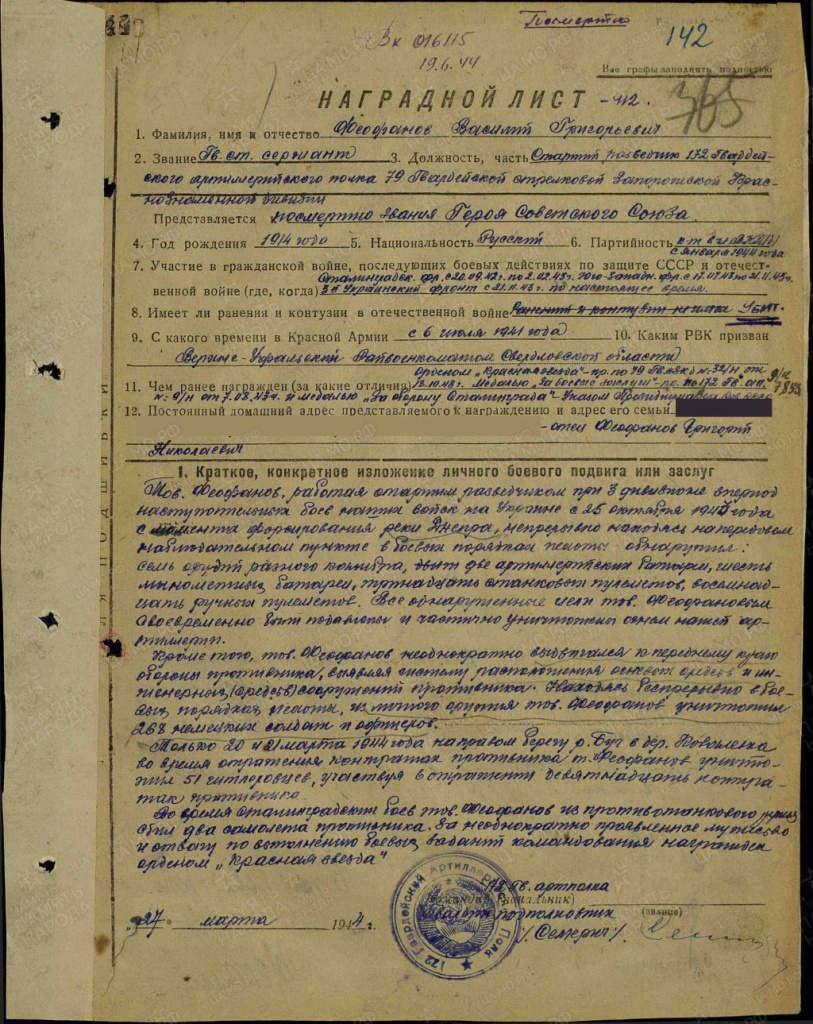 Посмертно
142
Вк 016115
19.6.44
Все графы заполнять полностью
НАГРАДНОЙ ЛИСТ - 412.
365
1. Фамилия, имя и отчество Феофанов Василий Григорьевич
2. Звание Гв. ст. сержант 3. Должность, часть Старший разведчик 172 Гвардей-
ского артиллерийского полка 79 Гвардейской стрелковой Запорожской Крас-
нознаменной дивизии
Представляется посмертно звания Героя Советского Союза.
4. Год рождения 1914 года 5. Национальность Русский 6. Партийность к-т в чл ВКП/б/
с января 1944 года
7. Участие в гражданской войне, последующих боевых действиях по защите СССР и отечест-
Сталинградск. фр. с 20.09.42 г. по 2.02.43 г. Юго-Запад. фр. с по 21.11.43 г.
венной войне (где, когда) 3й Украинский фронт с 21.11.43 г. по настоящее время.
8. Имеет ли ранения и контузии в отечественной войне Убит.
9. С какого времени в Красной Армии с 6 июля 1941 года 10. Каким РВК призван
Верхне-Туринским Райвоенкоматом Свердловской области
Орденом „Красная звезда"- пр. по 79 № 32/н от
11. Чем ранее награжден (за какие отличия) 18.10.43 г. Медалью „За боевые заслуги"- пр. по 172 Гв. ап.
№ 9/н от 7.08.43 г. и медалью „За оборону Сталинграда"- Указом Президиума
12. Постоянный домашний адрес представляемого к награждению и адрес его семьи
- отец Феофанов Григорий
Николаевич
I. Краткое, конкретное изложение личного боевого подвига или заслуг
Тов. Феофанов, работая старшим разведчиком при 3 дивизионе в период
наступательных боев наших войск на Украине с 25 октября 1943 года
с момента форсирования реки Днепра, непрерывно находясь на передовом
наблюдательном пункте в боевых порядках пехоты обнаружил:
семь орудий разного калибра, две артиллерийских батареи, шесть
минометных батарей, тринадцать станковых пулеметов, восемнад-
цать ручных пулеметов. Все обнаруженные цели тов. Феофановым
своевременно были подавлены и частично уничтожены огнем нашей ар-
тиллерии.
Кроме того, тов. Феофанов неоднократно выдвигался к переднему краю
обороны противника, выявляя систему расположения огневых средств и ин-
женерных (средств) сооружений противника. Находясь беспрерывно в бое-
вых порядках пехоты, из личного оружия тов. Феофанов уничтожил
268 немецких солдат и офицеров.
Только 20 и 21 марта 1944 года на правом берегу р. Буг в дер. Ковалевка
во время отражения контратак противника т. Феофанов уничто-
жил 51 гитлеровцев, участвуя в отражении девятнадцать контра-
так противника.
Во время Сталинградских боев тов. Феофанов из противотанкового ружья
сбил два самолета противника. За неоднократно проявленное мужество
и отвагу по выполнению боевых заданий командования награжден
орденом „Красная звезда"
172 Гв. артполка
Командир (начальник)
Гвардии подполковник (звание)
/ Семкрич /
„27" марта 1944 г.
172 Гвардейский Артиллерийский Полк